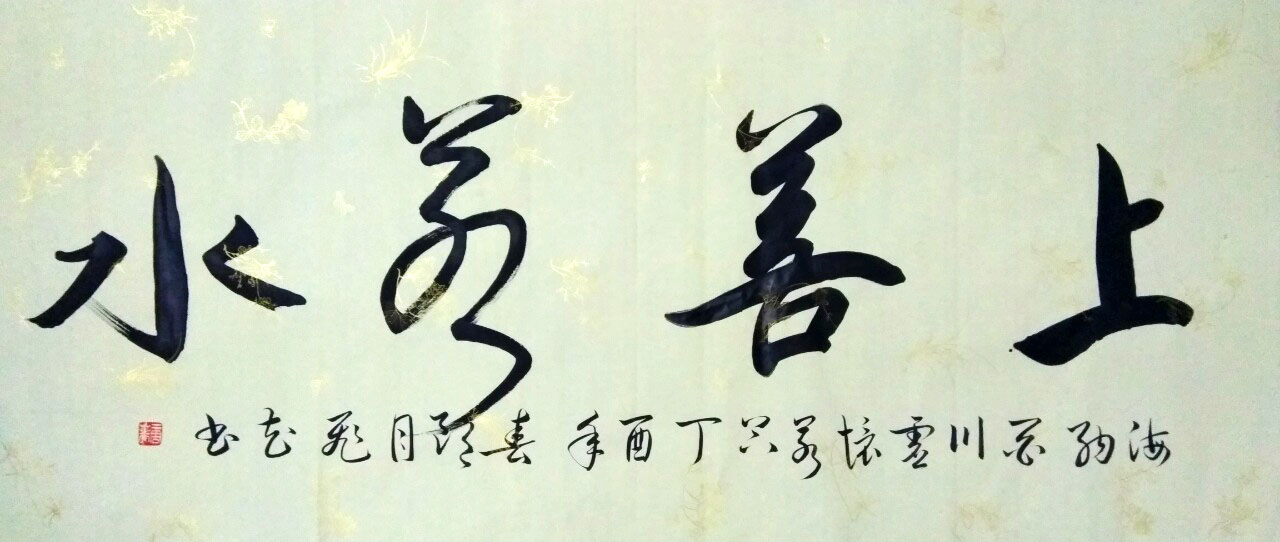 上善若水
海纳百川虚怀若谷丁酉年春月飛花书